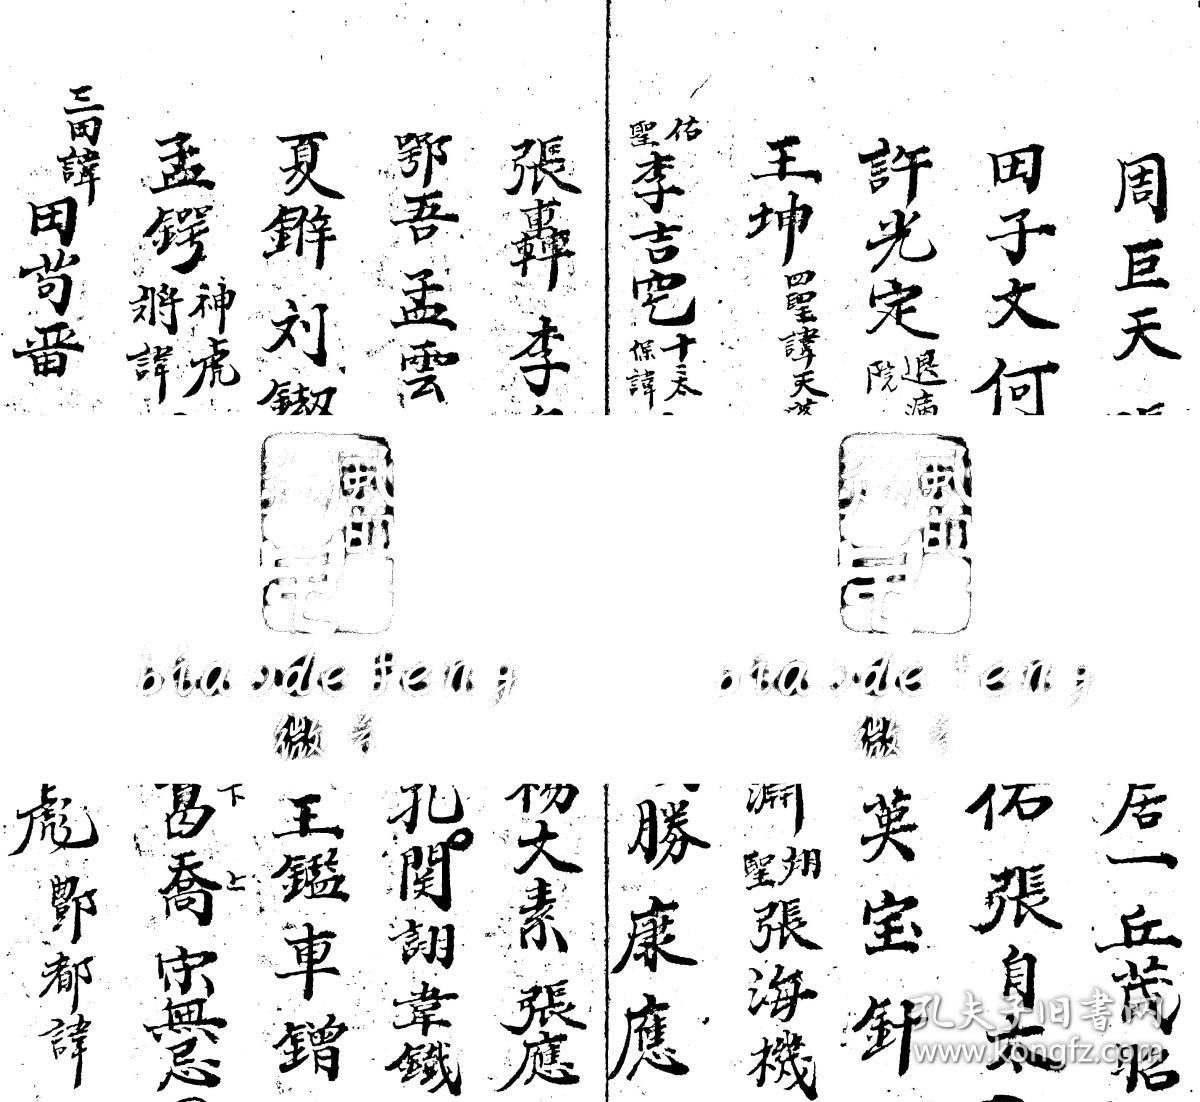 周巨天
田子文何
許光定 退病院
王坤 四聖諱天蓬
佑聖 李吉 十太保諱
張 李
鄂吾孟雲
夏 刘
孟鍔 神虎將諱
三田諱 田苟畨
居一丘茂昭
佑張自太
英宝針
淵 翊聖 張海機
勝康應
楊大素張應
孔関詡韋鐵
王鑑車鏳
葛喬宋無忌 下 上
彪 酆都諱
微
孔夫子旧书网
www.kongfz.com